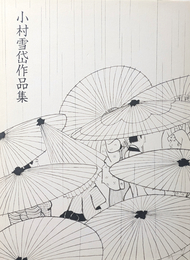 小村雪岱作品集